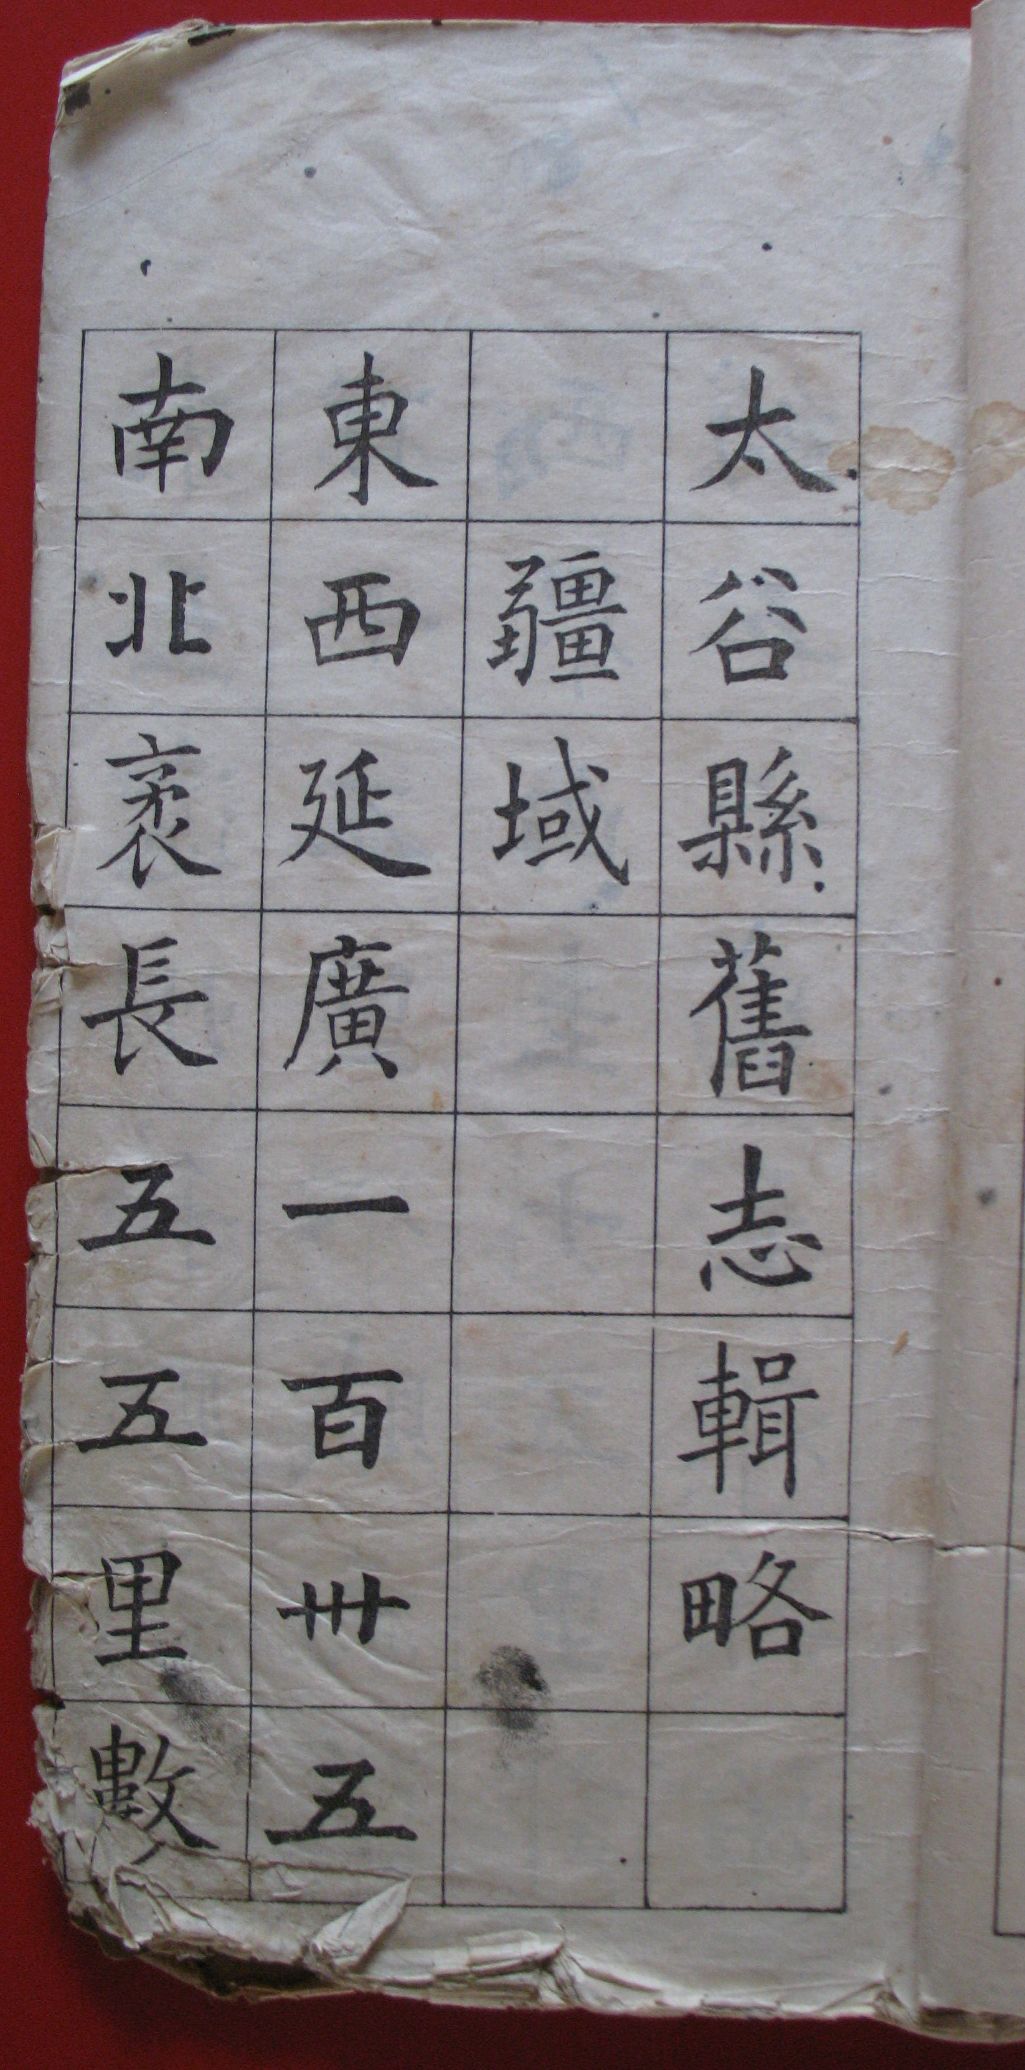 太谷縣舊志輯略
疆域
東西延廣一百卌五
南北袤長五五里數